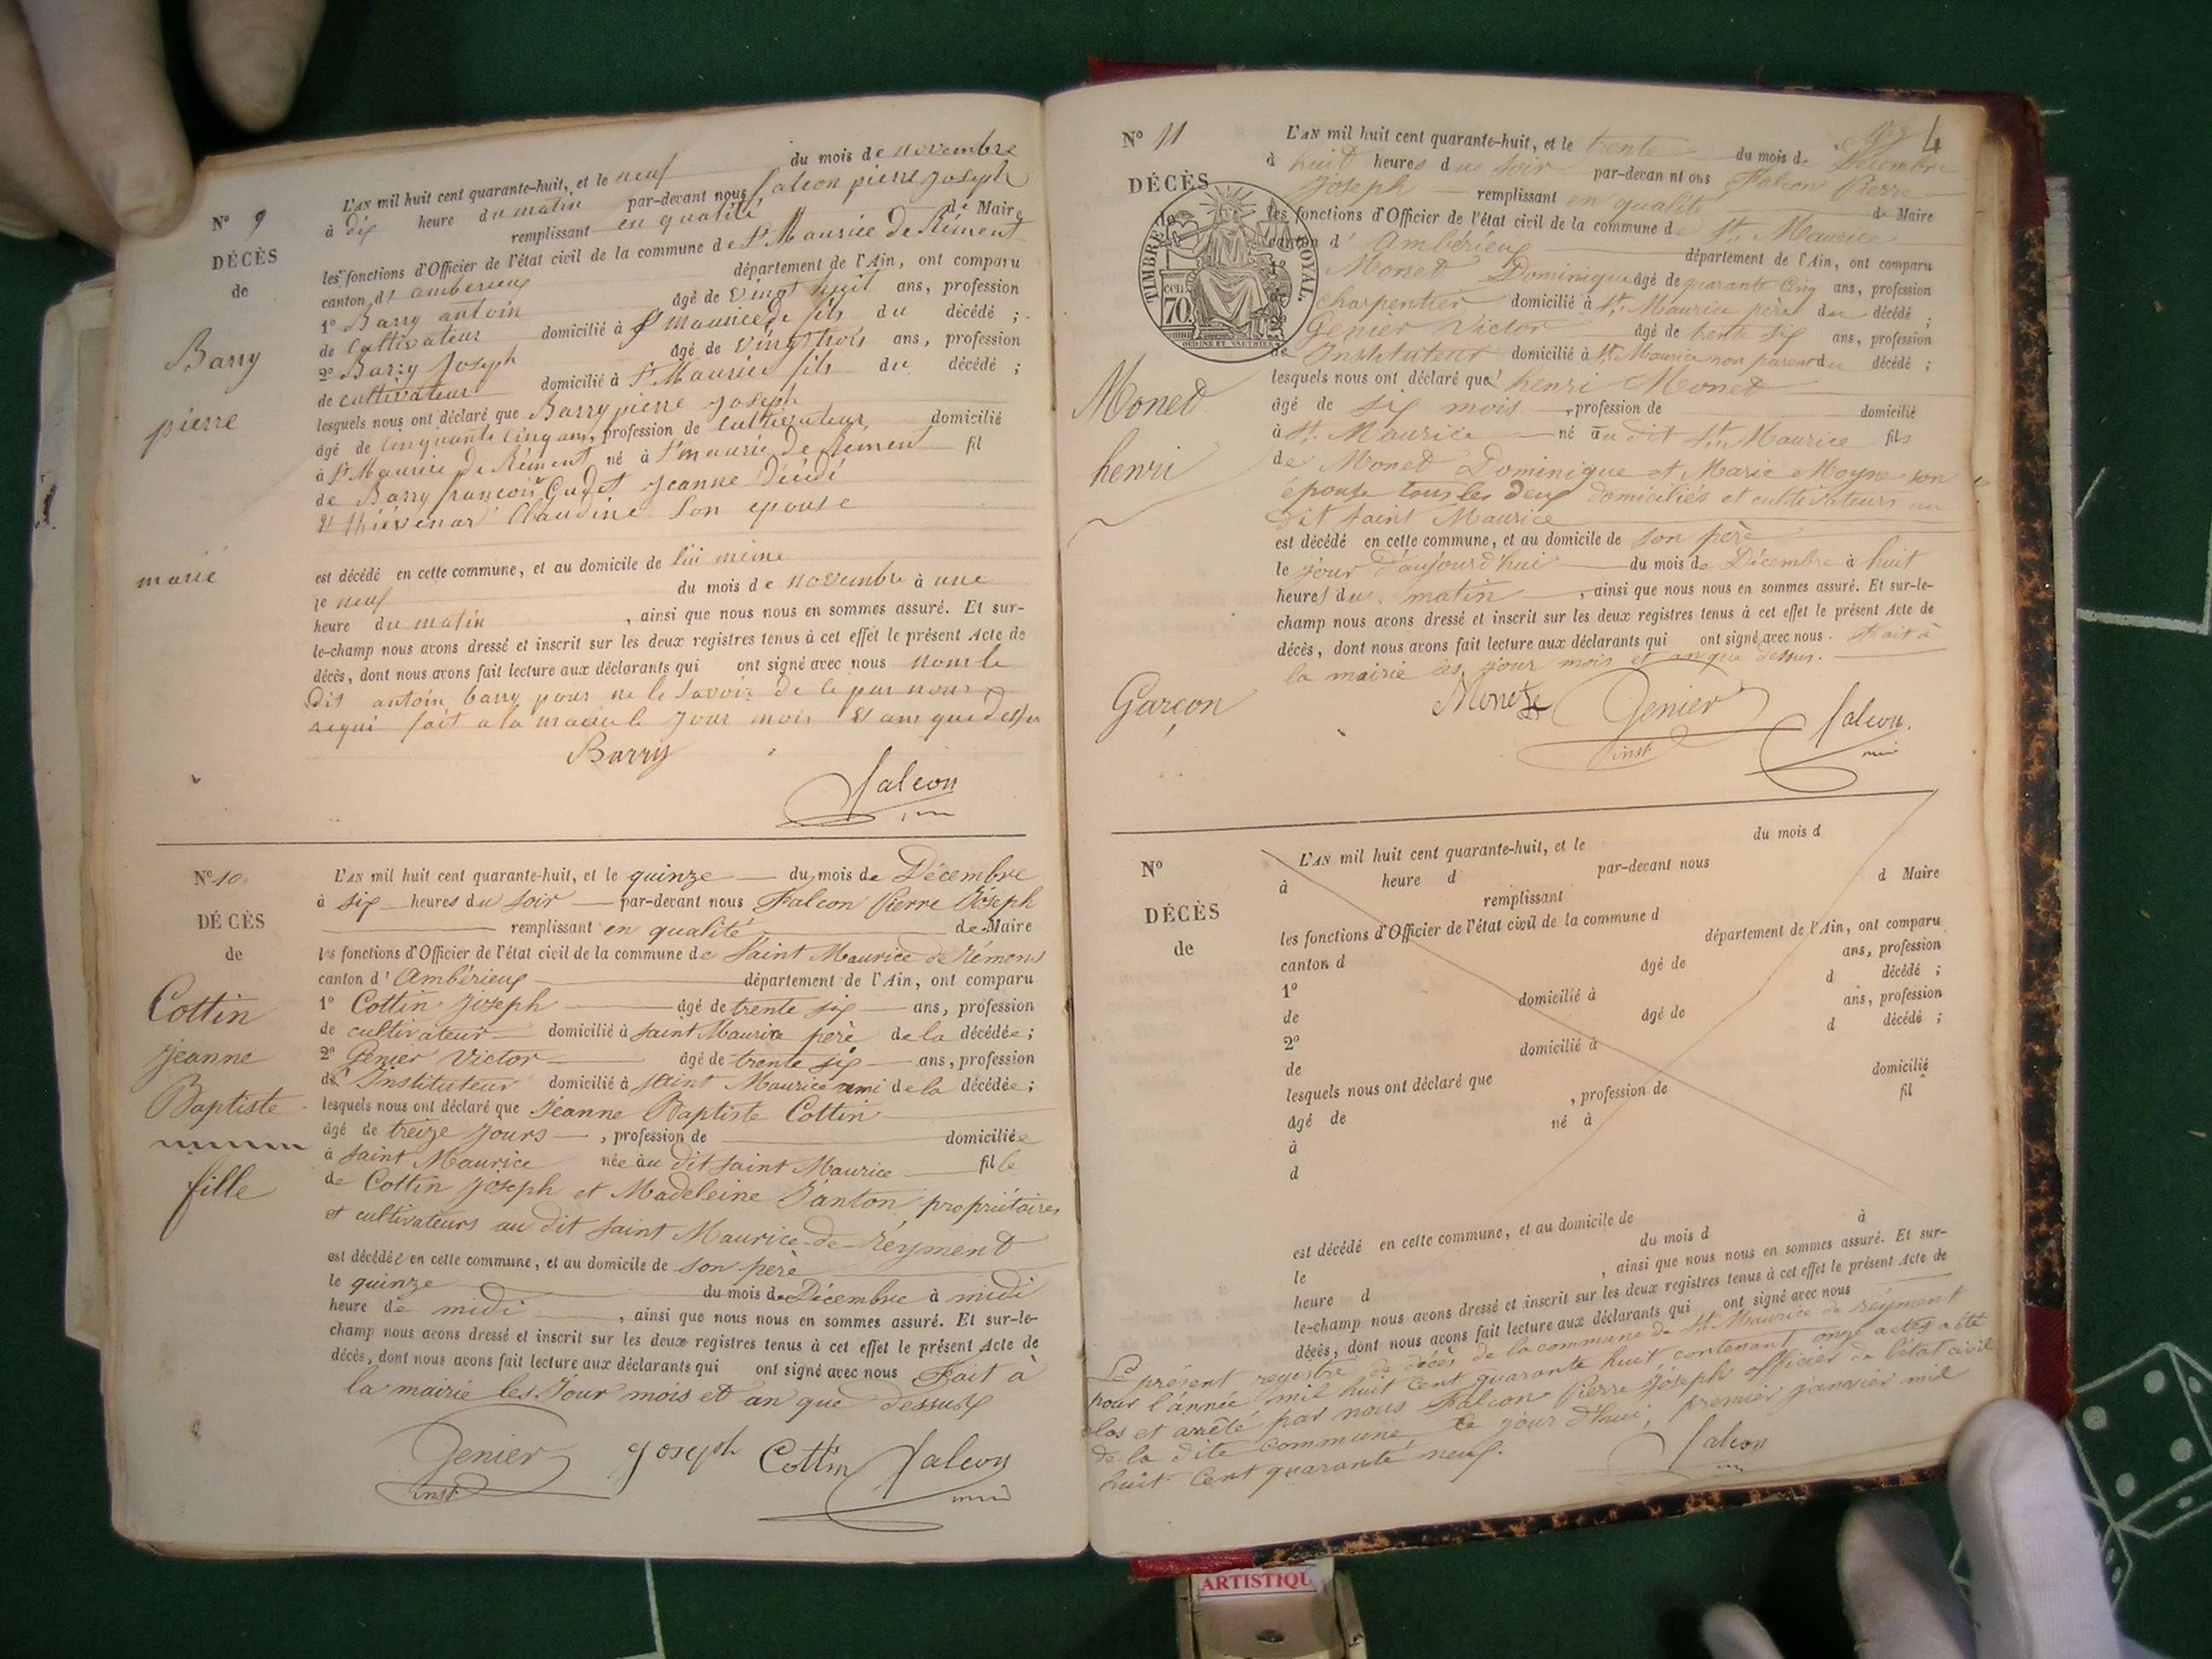 N° 9
DÉCÈS
de
Barry
pierre
marié
L'AN mil huit cent quarante-huit, et le neuf du mois de novembre
à dix heure du matin par-devant nous falcon pierre joseph
remplissant en qualité de Maire
les fonctions d'Officier de l'état civil de la commune de St Maurice de Rément
canton d' amberieux département de l'Ain, ont comparu
1° Barry antoin âgé de vingt huit ans, profession
de Cultivateur domicilié à St maurice fils du décédé ;
2° Barry Joseph âgé de vingt trois ans, profession
de cultivateur domicilié à St Maurice fils du décédé ;
lesquels nous ont déclaré que Barry pierre joseph
âgé de Cinquante Cinq ans, profession de Cultivateur domicilié
à St Maurice de Rément né à St maurice de Rement fil
de Barry françois Jeanne Décédé
Claudine Son epouse
est décédé en cette commune, et au domicile de lui même
le neuf du mois de novembre à une
heure du matin , ainsi que nous nous en sommes assuré. Et sur-
le-champ nous avons dressé et inscrit sur les deux registres tenus à cet effet le présent Acte de
décès, dont nous avons fait lecture aux déclarants qui ont signé avec nous nom le
dit antoin barry pour ne le Savoir de ce par nous
requi fait a la mairie le jour mois Et ans que dessu
Barry
falcon
N° 10
DÉCÈS
de
Cottin
Jeanne
Baptiste
fille
L'AN mil huit cent quarante-huit, et le quinze du mois de Décembre
à six heures du soir par-devant nous Falcon Pierre Joseph
remplissant en qualité de Maire
les fonctions d'Officier de l'état civil de la commune de Saint Maurice de Rémens
canton d' Ambérieux département de l'Ain, ont comparu
1° Cottin Joseph âgé de trente six ans, profession
de cultivateur domicilié à saint Maurice père de la décédée ;
2° Genier Victor âgé de trente six ans, profession
de Instituteur domicilié à saint Maurice ami de la décédée ;
lesquels nous ont déclaré que Jeanne Baptiste Cottin
âgé de treize jours , profession de domiciliée
à saint Maurice née au dit saint Maurice fille
de Cottin Joseph et Madeleine Janton propriétaires
et cultivateurs au dit saint Maurice-de-Réyment
est décédée en cette commune, et au domicile de son père
le quinze du mois de Décembre à midi
heure de midi , ainsi que nous nous en sommes assuré. Et sur-le-
champ nous avons dressé et inscrit sur les deux registres tenus à cet effet le présent Acte de
décès, dont nous avons fait lecture aux déclarants qui ont signé avec nous Fait à
la mairie les Jour mois et an que dessus
Genier Joseph Cottin falcon
inst
N° 11
4
DÉCÈS
de
TIMBRE ROYAL.
70
cen.
Monet
henri
Garçon
L'AN mil huit cent quarante-huit, et le trente du mois de Décembre
à huit heures du soir par-devant nous Falcon Pierre
Joseph remplissant en qualité de Maire
les fonctions d'Officier de l'état civil de la commune de St. Maurice
canton d' Ambérieux département de l'Ain, ont comparu
1° Monet Dominique âgé de quarante cinq ans, profession
charpentier domicilié à St. Maurice père du décédé ;
Genier Victor âgé de trente six ans, profession
de Instituteur domicilié à St Maurice non parent du décédé ;
lesquels nous ont déclaré que henri Monet
âgé de six mois , profession de domicilié
à St. Maurice né au dit St. Maurice fils
de Monet Dominique et Marie Moyne son
épouse tous les deux domiciliés et cultivateurs au
dit saint Maurice
est décédé en cette commune, et au domicile de son père
le jour d'aujourd'hui du mois de Décembre à huit
heures du matin , ainsi que nous nous en sommes assuré. Et sur-le-
champ nous avons dressé et inscrit sur les deux registres tenus à cet effet le présent Acte de
décès, dont nous avons fait lecture aux déclarants qui ont signé avec nous. Fait à
la mairie les jour mois et an que dessus.
Monet Genier falcon.
inst
N°
DÉCÈS
de
L'AN mil huit cent quarante-huit, et le du mois d
à heure d par-devant nous
remplissant d Maire
les fonctions d'Officier de l'état civil de la commune d
canton d département de l'Ain, ont comparu
1° âgé de ans, profession
de domicilié à d décédé ;
2° âgé de ans, profession
de domicilié à d décédé ;
lesquels nous ont déclaré que
âgé de , profession de domicilié
à né à fil
d
est décédé en cette commune, et au domicile de
le du mois d à
heure d , ainsi que nous nous en sommes assuré. Et sur-
le-champ nous avons dressé et inscrit sur les deux registres tenus à cet effet le présent Acte de
décès, dont nous avons fait lecture aux déclarants qui ont signé avec nous
Le présent registre de décès de la commune de St. Maurice de réyment
pour l'année mil huit cent quarante huit contenant onze actes a été
clos et arrêté par nous Falcon Pierre Joseph officier de l'état civil
de la dite commune, ce jour d'hui, premier janvier mil
huit cent quarante neuf.
falcon
ARTISTIQU